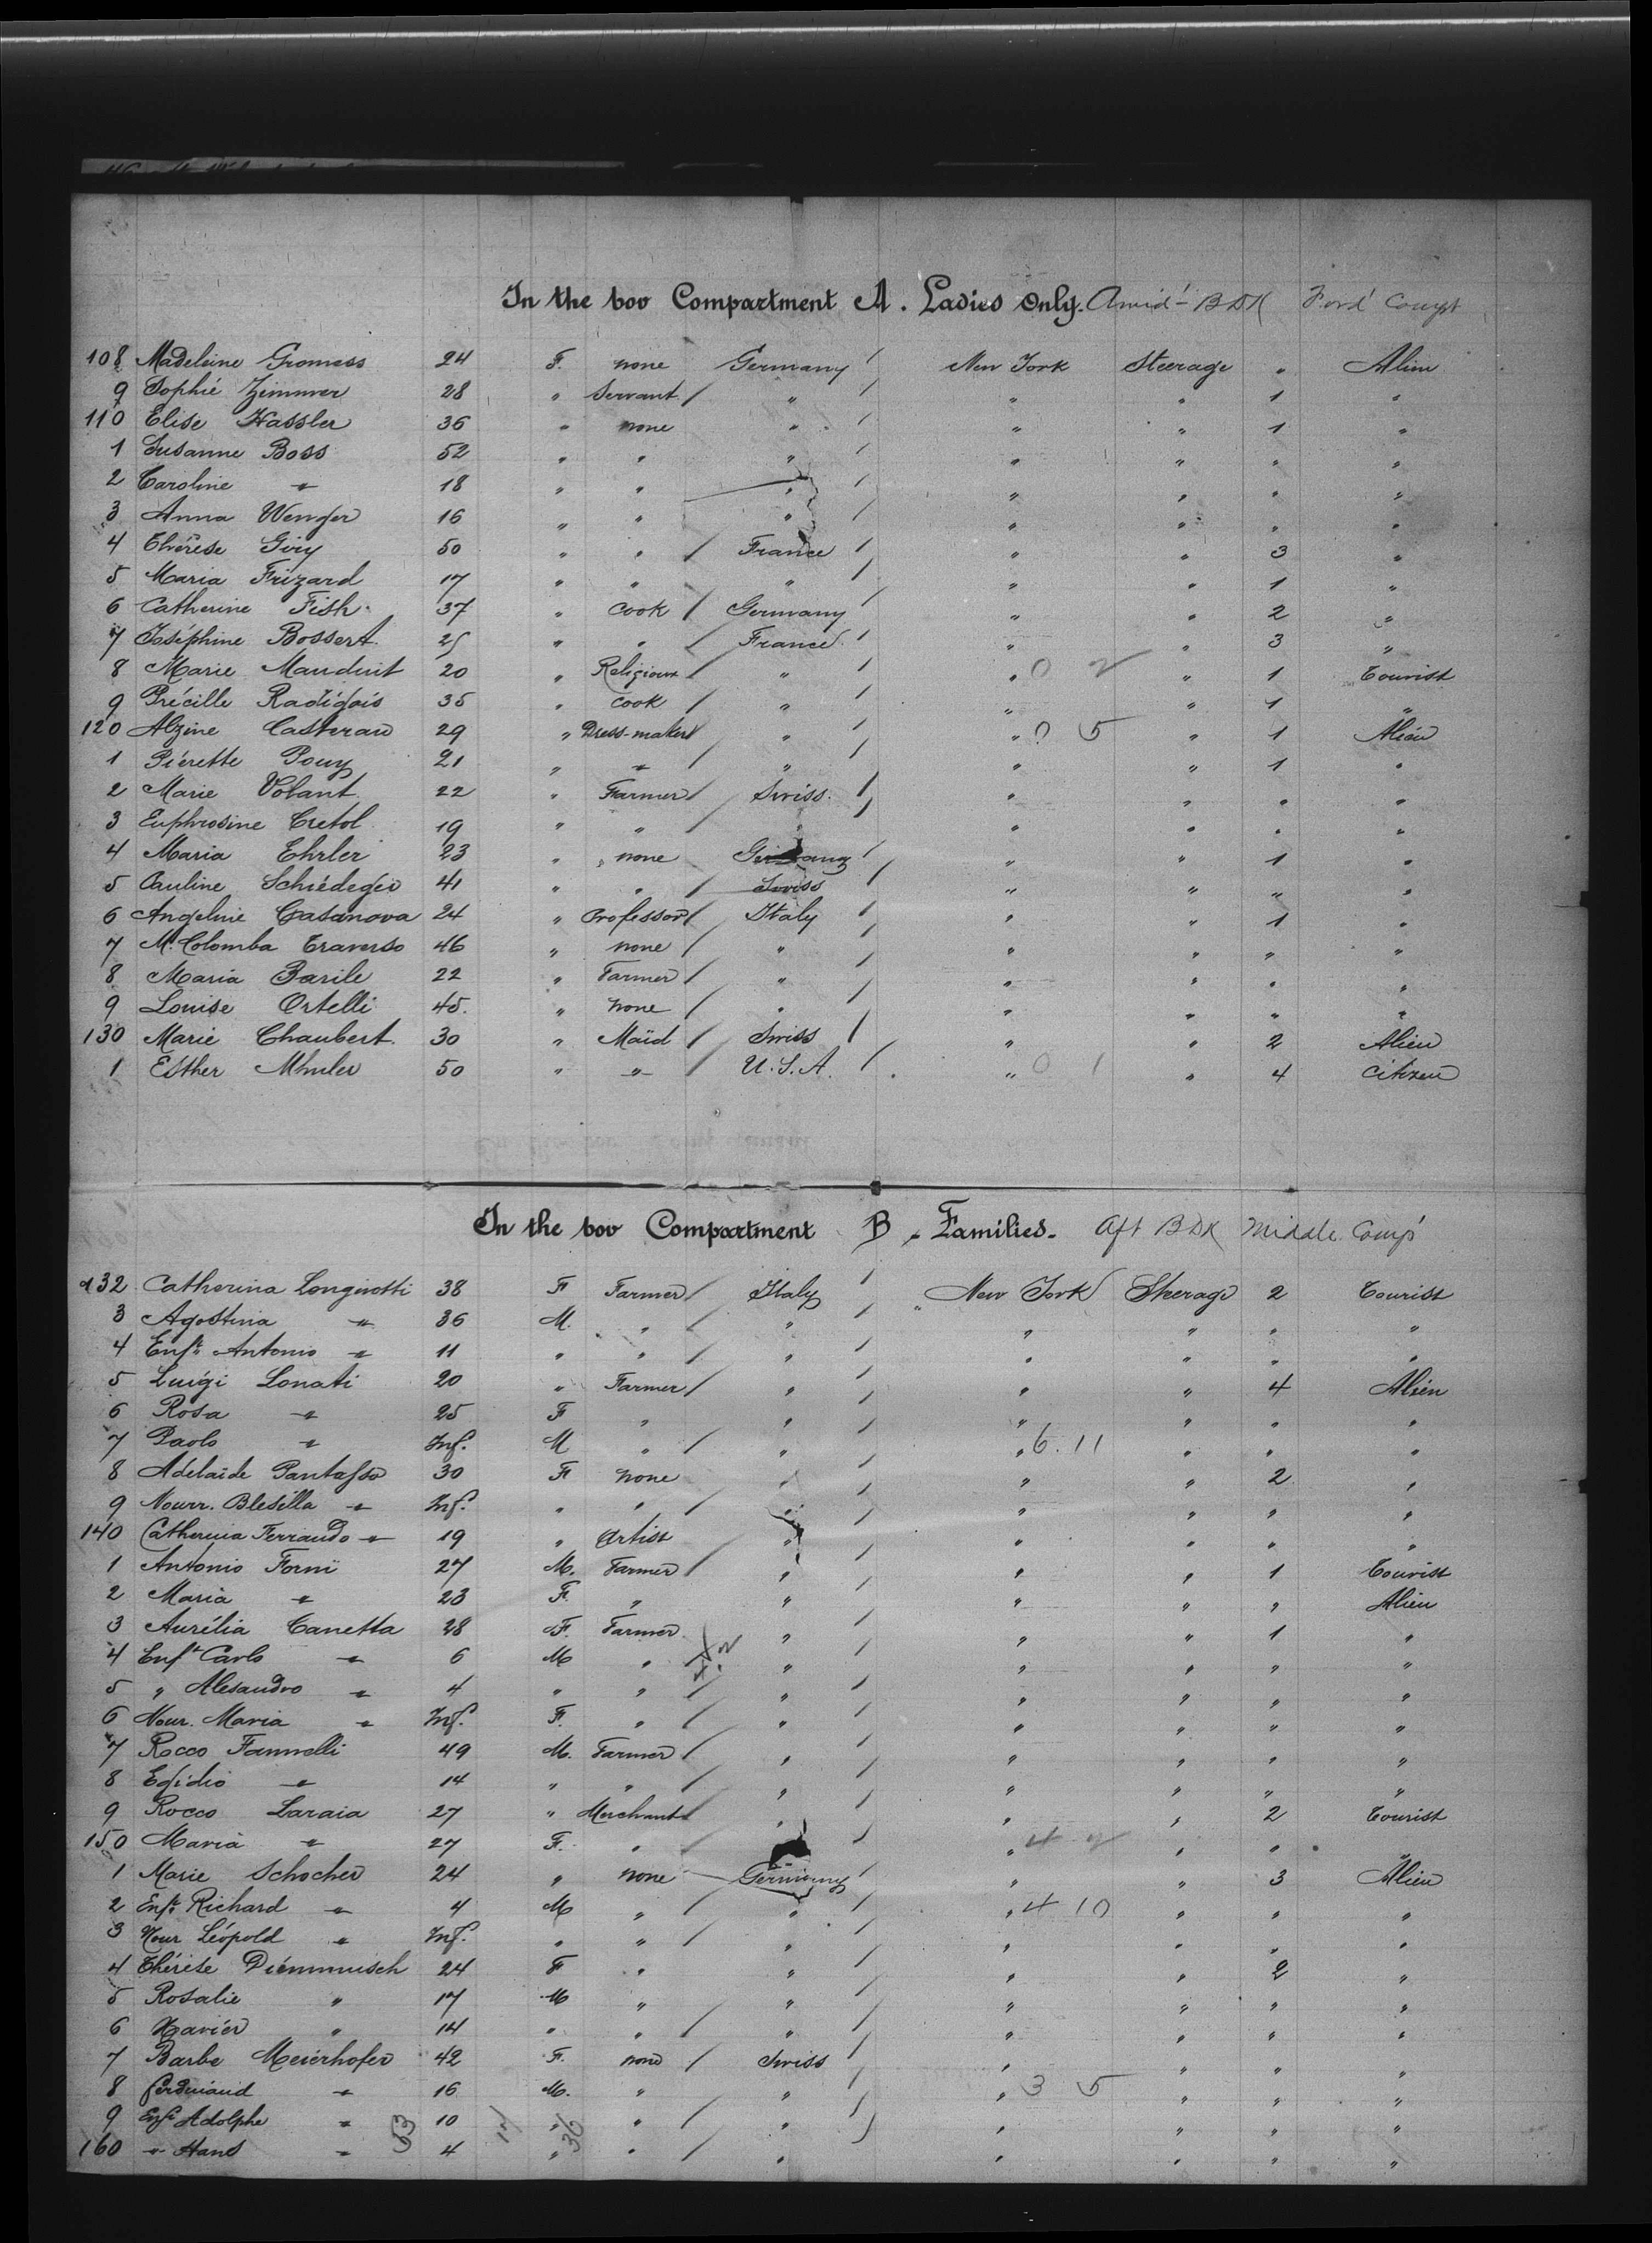 In the bow Compartment A. Ladies Only. Amid - B DK Ford Compt
108 Madeleine Gromess 24 F. none Germany / New York Steerage " Alien
9 Sophié Zimmer 28 " Servant / " / " " 1 "
110 Elise Hassler 36 " none " / " " 1 "
1 Susanne Boss 52 " " " / " " " "
2 Caroline " 18 " " " / " " " "
3 Anna Wenger 16 " " " / " " " "
4 Thérèse Giry 50 " " / France / " " 3 "
5 Maria Frizard 17 " " " / " " 1 "
6 Catherine Fish 37 " Cook / Germany / " " 2 "
7 Joséphine Bossert 25 " " / France / " " 3 "
8 Marie Mauduit 20 " Religious / " / " 0 2 " 1 Tourist
9 Précille Radigois 35 " Cook / " / " " 1 "
120 Alzine Casterau 29 " Dress-maker / " / " 0 5 " 1 Alien
1 Piérette Pouy 21 " " / " / " " 1 "
2 Marie Volant 22 " Farmer / Swiss / " " " "
3 Euphrosine Cretol 19 " " / " / " " " "
4 Maria Ehrler 23 " " none Germany / " " 1 "
5 Pauline Schiédeger 41 " " / Swiss / " " " "
6 Angeline Casanova 24 " Professor / Italy / " " 1 "
7 M. Colomba Traverso 46 " none / " / " " " "
8 Maria Barile 22 " Farmer / " / " " " "
9 Louise Ortelli 45. " none / " / " " " "
130 Marie Chaubert 30 " Maïd / Swiss / " " 2 Alien
1 Esther 50 " " / U.S.A. / " 0 1 " 4 Citizen
In the bow Compartment B - Families - Aft B DK Middle Comp
132 Catherina Longinotti 38 F Farmer / Italy / New York Steerage 2 Tourist
3 Agostina " 36 M. " / " / " " " "
4 Enft Antonio " 11 " " / " / " " " "
5 Luigi Lonati 20 " Farmer / " / " " 4 Alien
6 Rosa " 25 F " " / " " " "
7 Paolo " Inf. M " / " / " 6.11 " " "
8 Adelaïde Pantasso 30 F none " / " " 2 "
9 Nourr. Blesilla " Inf. " " / " / " " " "
140 Catherina Ferrando " 19 " Artist " / " " " "
1 Antonio Forni 27 M. Farmer / " / " " 1 Tourist
2 Maria " 23 F. " " / " " " Alien
3 Aurélia Canetta 28 F. Farmer " / " " 1 "
4 Enft Carlo " 6 M " " / " " " "
5 " Alesandro " 4 " " / " / " " " "
6 Nour. Maria " Inf. F. " / " / " " " "
7 Rocco Fannelli 49 M. Farmer / " / " " " "
8 Egidio " 14 " " / " / " " " "
9 Rocco Laraia 27 " Merchant / " / " " 2 Tourist
150 Maria " 27 F. " / " / " 4 2 " " "
1 Marie Schocher 24 " none Germany / " " 3 Alien
2 Enft Richard " 4 M " / " / " 4 10 " " "
3 Nour Léopold " Inf. " " / " / " " " "
4 Thérèse Diemmusch 24 F " " / " " 2 "
5 Rosalie " 17 M " / " / " " " "
6 Xavier " 14 " " / " / " " " "
7 Barbe Meierhofer 42 F. none / Swiss / " " " "
8 Ferdinand " 16 M. " " / " 3 5 " " "
9 Enft Adolphe " 53 10 17 " 36 " / " / " " " "
160 " Hans " 4 " " / " " " " "